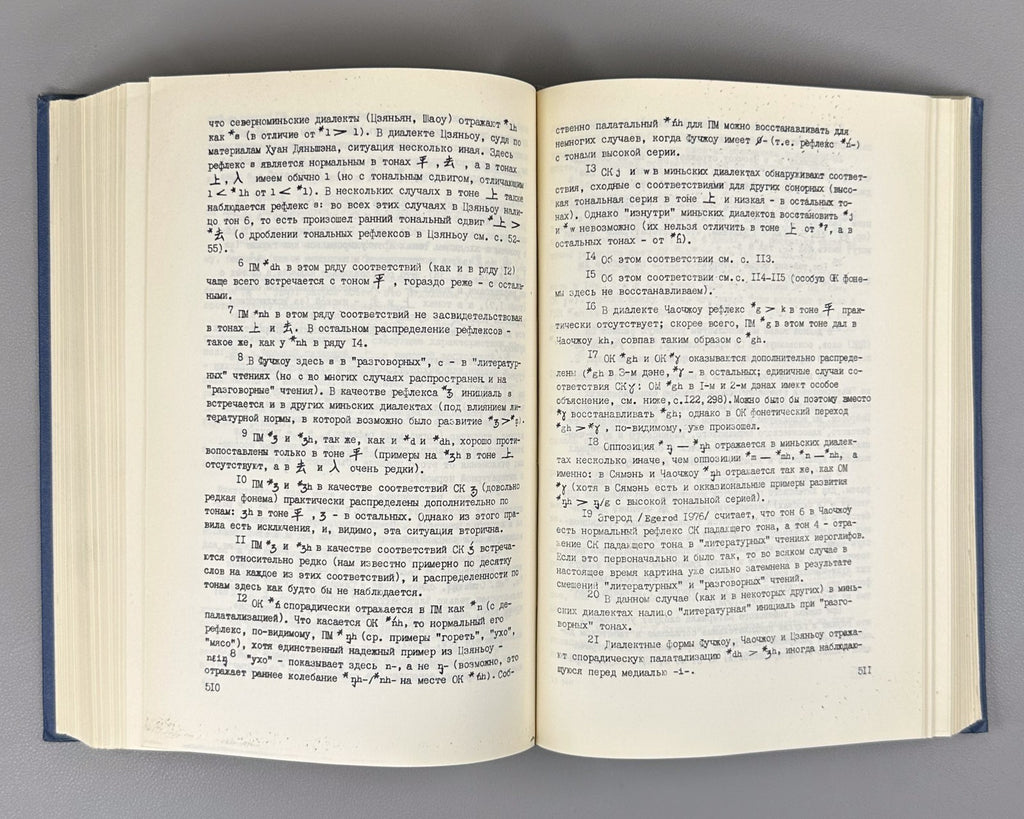 что северноминьские диалекты (Цзяньян, Шаоу) отражают *lh
как *s (в отличие от *l > l). В диалекте Цзяньоу, судя по
материалам Хуан Дяньшэна, ситуация несколько иная. Здесь
рефлекс s является нормальным в тонах 平, 去, а в тонах
上, 入 имеем обычно l (но с тональным сдвигом, отличающим
l < *lh от l < *l). В нескольких случаях в тоне 上 также
наблюдается рефлекс s: во всех этих случаях в Цзяньоу нали-
цо тон 6, то есть произошел ранний тональный сдвиг *上 >
*去 (о дроблении тональных рефлексов в Цзяньоу см. с. 52-
55).
6 ПМ *dh в этом ряду соответствий (как и в ряду I2)
чаще всего встречается с тоном 平, гораздо реже - с осталь-
ными.
7 ПМ *nh в этом ряду соответствий не засвидетельствован
в тонах 上 и 去. В остальном распределение рефлексов -
такое же, как у *nh в ряду I4.
8 В Фучжоу здесь s в "разговорных", c - в "литератур-
ных" чтениях (но c во многих случаях распространен и на
"разговорные" чтения). В качестве рефлекса *ʒ инициаль s
встречается и в других миньских диалектах (под влиянием ли-
тературной нормы, в которой возможно было развитие *ʒ > *
9 ПМ *ʒ и *ʒh, так же, как и *d и *dh, хорошо проти-
вопоставлены только в тоне 平 (примеры на *ʒh в тоне 上
отсутствуют, а в 去 и 入 очень редки).
10 ПМ *ʒ и *ʒh в качестве соответствий СК ʒ (довольно
редкая фонема) практически распределены дополнительно по
тонам: ʒh в тоне 平, ʒ - в остальных. Однако из этого пра-
вила есть исключения, и, видимо, эта ситуация вторична.
11 ПМ *ʒ и *ʒh в качестве соответствий СК ʒ́ встреча-
ются относительно редко (нам известно примерно по десятку
слов на каждое из этих соответствий), и распределенности по
тонам здесь как будто бы не наблюдается.
12 ОК *ń спорадически отражается в ПМ как *n (с де-
палатализацией). Что касается ОК *ńh, то нормальный его
рефлекс, по-видимому, ПМ *ŋh (ср. примеры "гореть", "ухо",
"мясо"), хотя единственный надежный пример из Цзяньоу -
8 "ухо" - показывает здесь n-, а не ŋ- (возможно, это
отражает раннее колебание *ŋh-/*nh- на месте ОК *ńh). Соб-
510
ственно палатальный *ńh для ПМ можно восстанавливать для
немногих случаев, когда Фучжоу имеет ø- (т.е. рефлекс *ń-)
с тонами высокой серии.
13 СК j и w в миньских диалектах обнаруживают соответ-
ствия, сходные с соответствиями для других сонорных (высо-
кая тональная серия в тоне 上 и низкая - в остальных то-
нах). Однако "изнутри" миньских диалектов восстановить *j
и *w невозможно (их нельзя отличить в тоне 上 от *ʔ, а в
остальных тонах - от *ɦ).
14 Об этом соответствии см. с. II3.
15 Об этом соответствии см.с. II4-II5 (особую ОК фоне-
мы здесь не восстанавливаем).
16 В диалекте Чаочжоу рефлекс *g > k в тоне 平 прак-
тически отсутствует; скорее всего, ПМ *g в этом тоне дал в
Чаочжоу kh, совпав таким образом с *gh.
17 ОК *gh и ОК *ɣ оказывается дополнительно распреде-
лены (*gh в 3-м дэне, *ɣ - в остальных; единичные случаи со-
ответствия СК ɣ : ОМ *gh в I-м и 2-м дэнах имеют особое
объяснение, см. ниже, с.I22, 298). Можно было бы поэтому вместо
*ɣ восстанавливать *gh; однако в ОК фонетический переход
*gh > *ɣ, по-видимому, уже произошел.
18 Оппозиция *ŋ — *ŋh отражается в миньских диалек-
тах несколько иначе, чем оппозиции *m — *mh, *n — *nh, а
именно: в Сямэнь и Чаочжоу *ŋh отражается так же, как ОМ
*ɣ (хотя в Сямэнь есть и окказиональные примеры развития
*ŋh > ŋ/g с высокой тональной серией).
19 Эгерод /Egerod 1976/ считает, что тон 6 в Чаочжоу
есть нормальный рефлекс СК падающего тона, а тон 4 - отра-
жение СК падающего тона в "литературных" чтениях иероглифов.
Если это первоначально и было так, то во всяком случае в
настоящее время картина уже сильно затемнена в результате
смешений "литературных" и "разговорных" чтений.
20 В данном случае (как и в некоторых других) в минь-
ских диалектах налицо "литературная" инициаль при "разго-
ворных" тонах.
21 Диалектные формы Фучжоу, Чаочжоу и Цзяньоу отража-
ют спорадическую палатализацию *dh > *ʒh, иногда наблюдаю-
щуюся перед медиалью -i-.
511